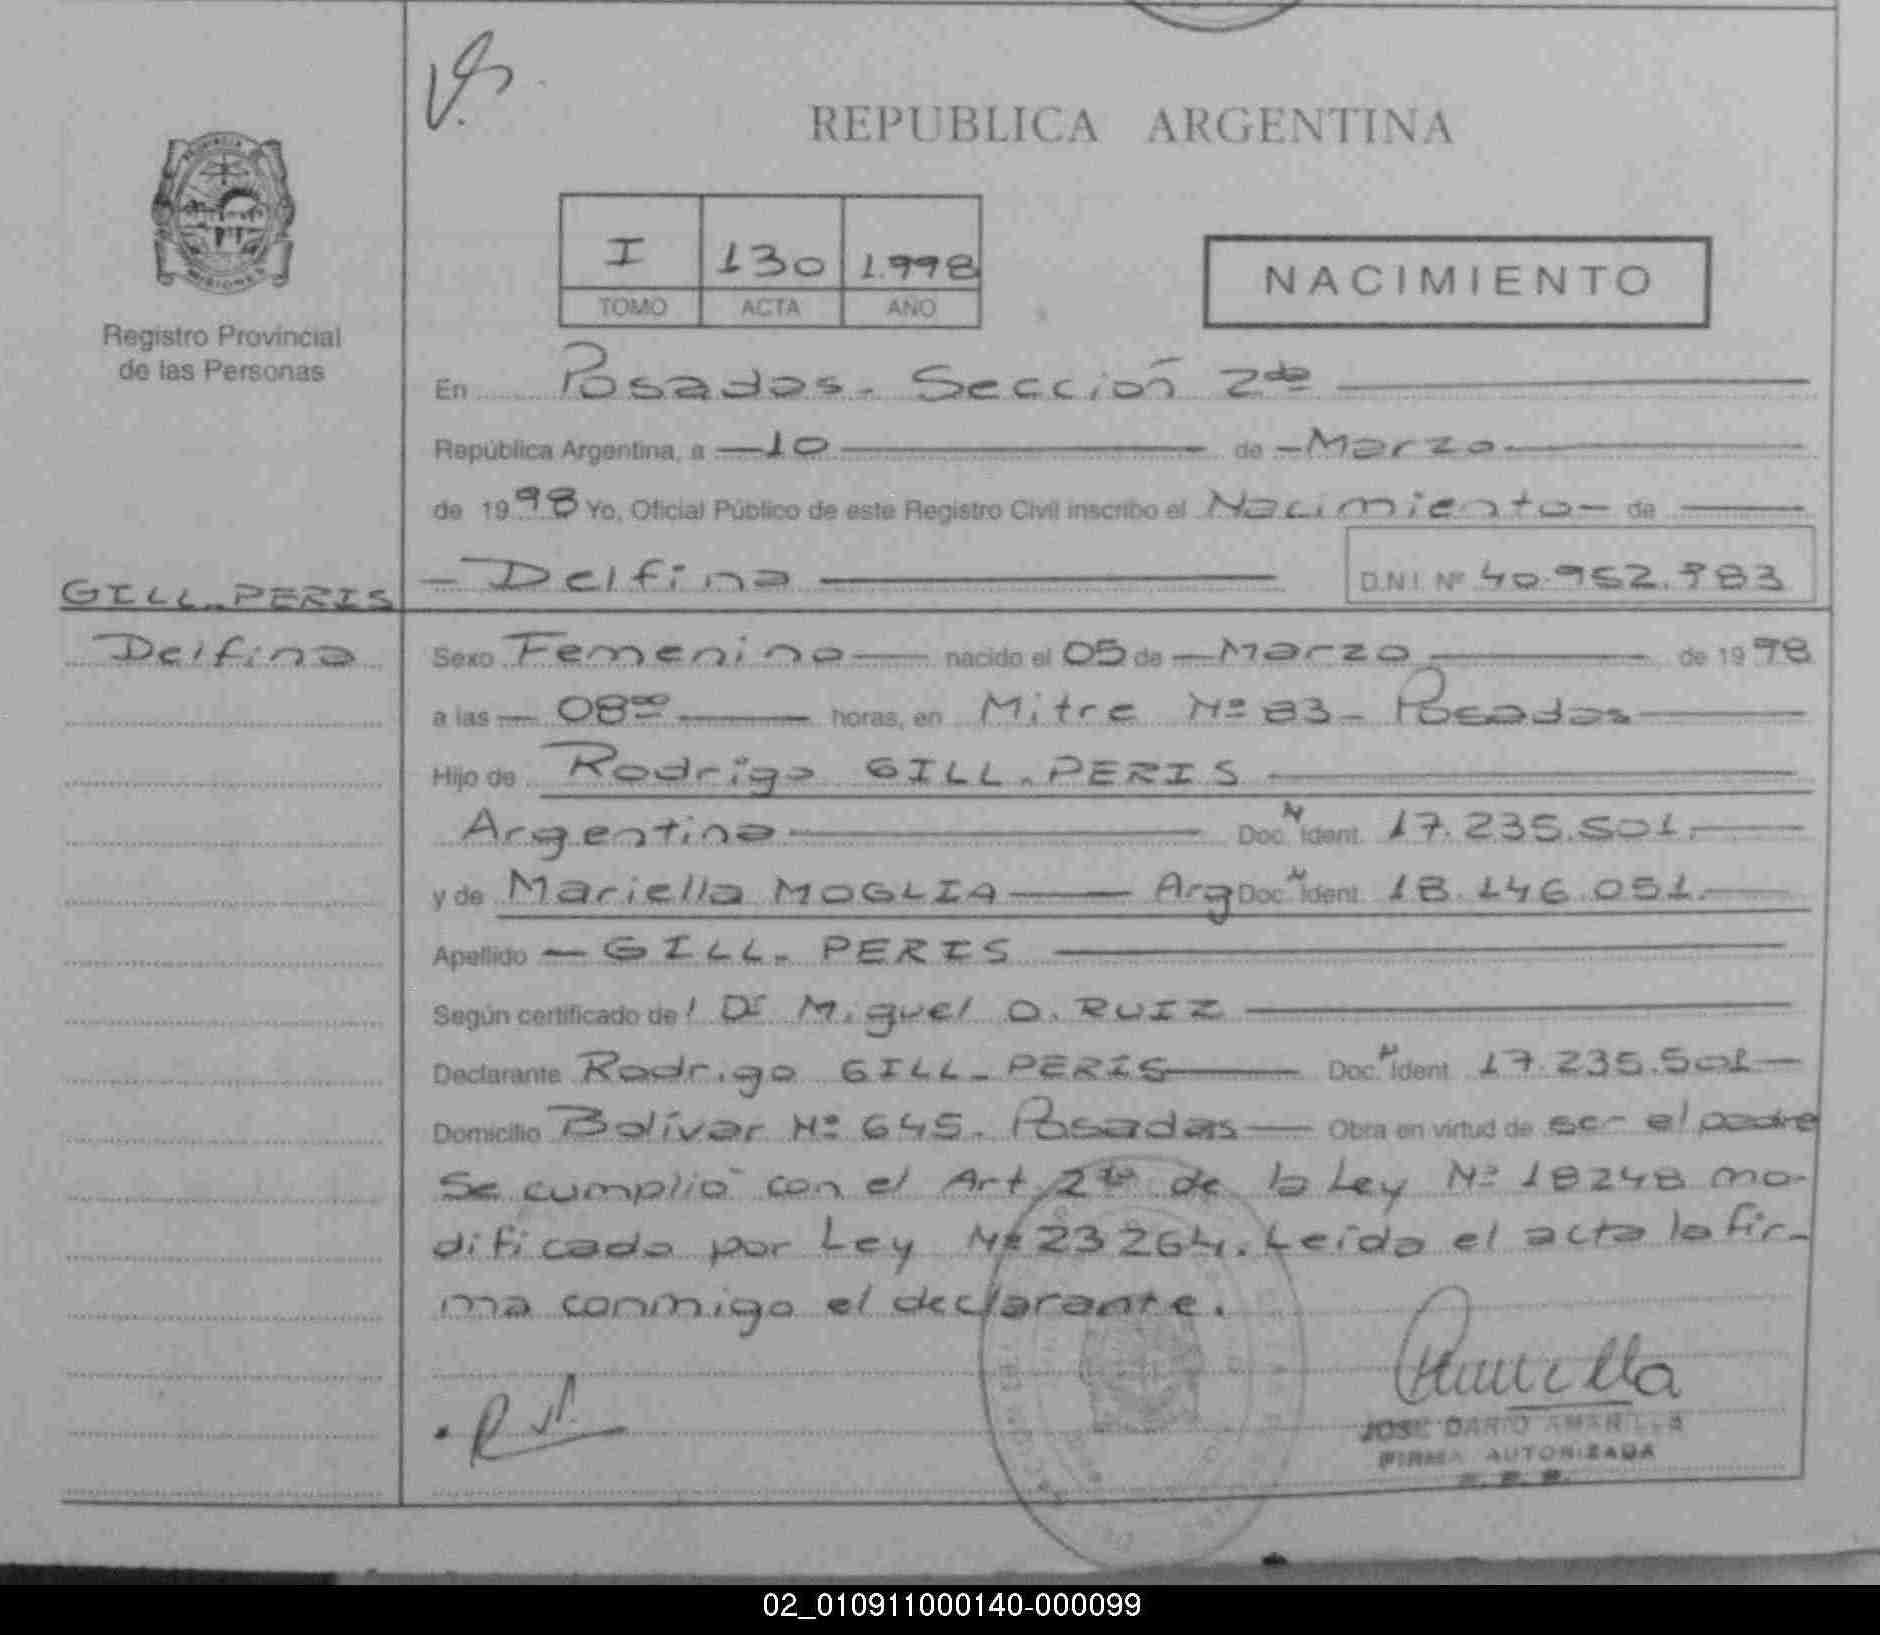 REPUBLICA ARGENTINA
I 130 1.998
TOMO ACTA AÑO
NACIMIENTO
Registro Provincial
de las Personas
En Posadas. Sección 2da
República Argentina, a 10 de Marzo
de 1998 Yo, Oficial Público de este Registro Civil inscribo el Nacimiento de
Delfina D.N.I. Nº 40.952.983
GILL-PERIS
Delfina
Sexo Femenino nacido el 05 de Marzo de 1998
a las 08⁰⁰ horas, en Mitre Nº 83 - Posadas
Hijo de Rodrigo GILL-PERIS
Argentina Doc. N Ident. 17.235.501.
y de Mariella MOGLIA Arg Doc. N Ident. 18.146.051.
Apellido GILL-PERIS
Según certificado del Dr Miguel O. RUIZ
Declarante Rodrigo GILL-PERIS Doc. N Ident. 17.235.501
Domicilio Bolívar Nº 645. Posadas Obra en virtud de ser el padre
Se cumplió con el Art 2do de la Ley Nº 18248 mo-
dificada por Ley Nº 23264. Leída el acta la fir-
ma conmigo el declarante.
JOSE DARIO AMARILLA
FIRMA AUTORIZADA
02_010911000140-000099